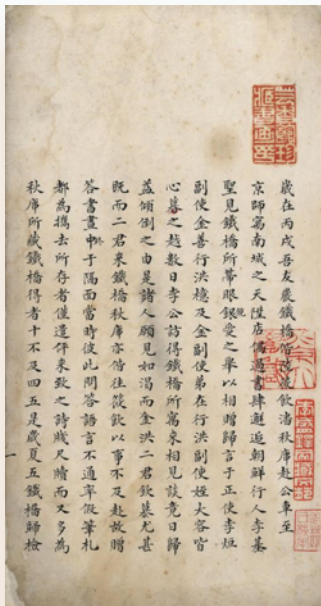 歲在丙戌吾友嚴鐵橋偕潘秋庫赴公車至
京師寓南城之天陞店偶過書肆邂逅朝鮮行人李基
聖見鐵橋所帶眼鏡愛之舉以相贈歸言于正使李烜
副使金善行洪檍及金副使弟在行洪副使姪大容皆
心慕之越數日李公訪得鐵橋所寓來相見談竟日歸
益傾倒之由是諸人願見如渴而金洪二君欽慕尤甚
既而二君來鐵橋秋庫亦偕往筵飲以事不及赴故贈
答書畫中於于隅面當時彼此問答語言不通率假筆札
都為攜去所存者僅遣伻來致之詩牋尺牘而又多為
秋庫所藏鐵橋得者十不及四五是歲夏五鐵橋師檢